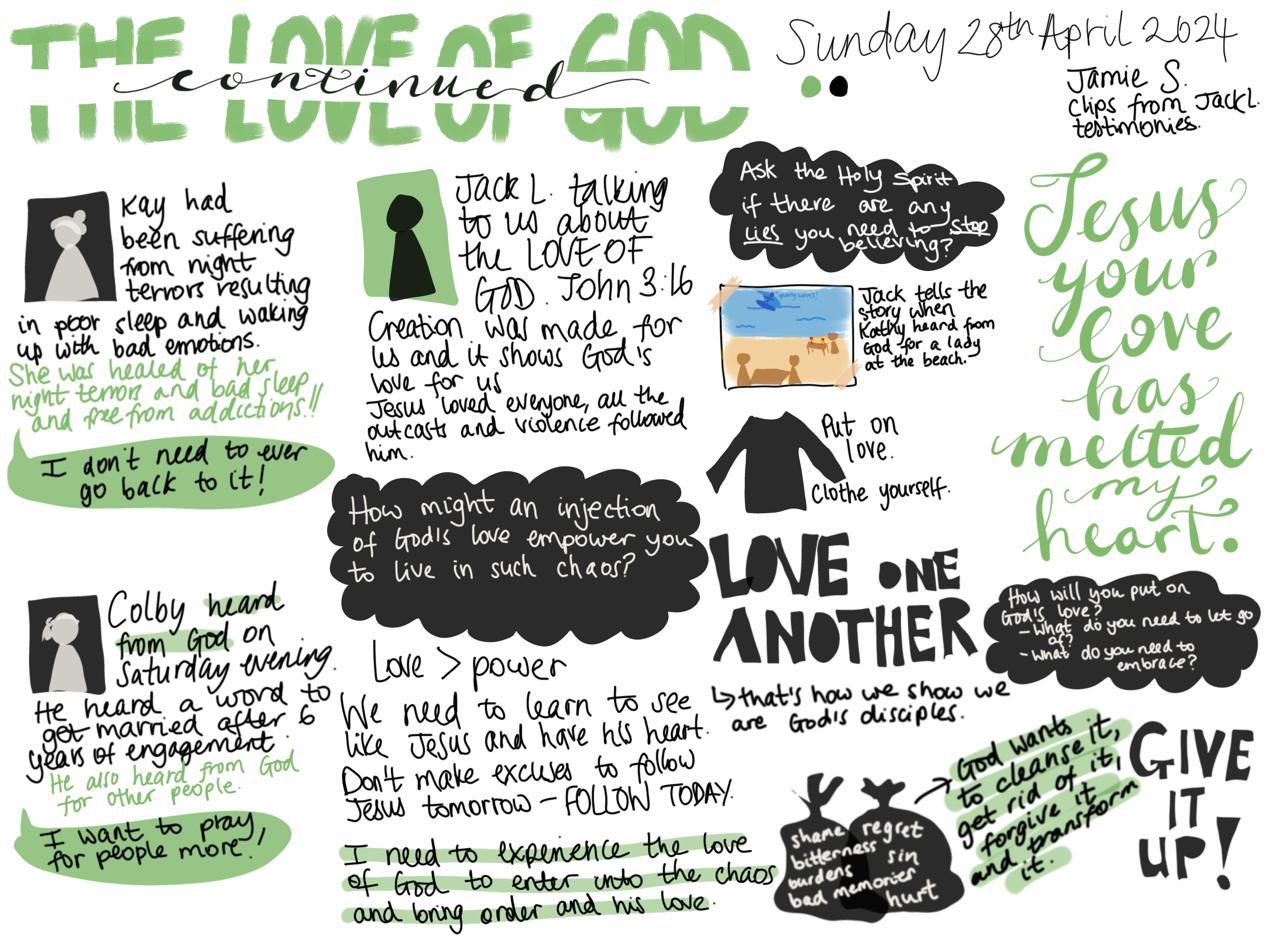 THE LOVE OF GOD
continued
Sunday 28th April 2024
Jamie S.
clips from Jack L.
testimonies.
Kay had
been suffering
from night
terrors resulting
in poor sleep and waking
up with bad emotions.
She was healed of her
night terrors and bad sleep
and free from addictions!!
I don't need to ever
go back to it!
Colby heard
from God on
Saturday evening.
He heard a word to
got married after 6
years of engagement.
He also heard from God
for other people.
I want to pray
for people more!
Jack L. talking
to us about
the LOVE OF
GOD. John 3:16
Creation was made for
us and it shows God's
love for us
Jesus loved everyone, all the
outcasts and violence followed
him.
How might an injection
of God's love empower you
to live in such chaos?
Love > power
We need to learn to see
like Jesus and have his heart.
Don't make excuses to follow
Jesus tomorrow - FOLLOW TODAY.
I need to experience the love
of God to enter into the chaos
and bring order and his love.
Ask the Holy Spirit
if there are any
lies you need to stop
believing?
Jack tells the
story when
Kathy heard from
God for a lady
at the beach.
Put on
love.
Clothe yourself.
LOVE ONE
ANOTHER
↳ that's how we show we
are God's disciples.
shame regret
bitterness sin
burdens
bad memories
hurt
→ God wants
to cleanse it,
get rid of it,
forgive it
and transform
it.
Jesus
your
love
has
melted
my
heart.
How will you put on
God's love?
- What do you need to let go
of?
- What do you need to
embrace?
GIVE
IT
UP!